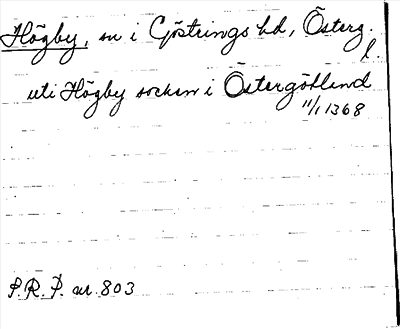 Högby, sn i Göstrings hd, Österg.
l.
uti Högby socken i Östergötland
11/1 1368
S.R.P. nr 803